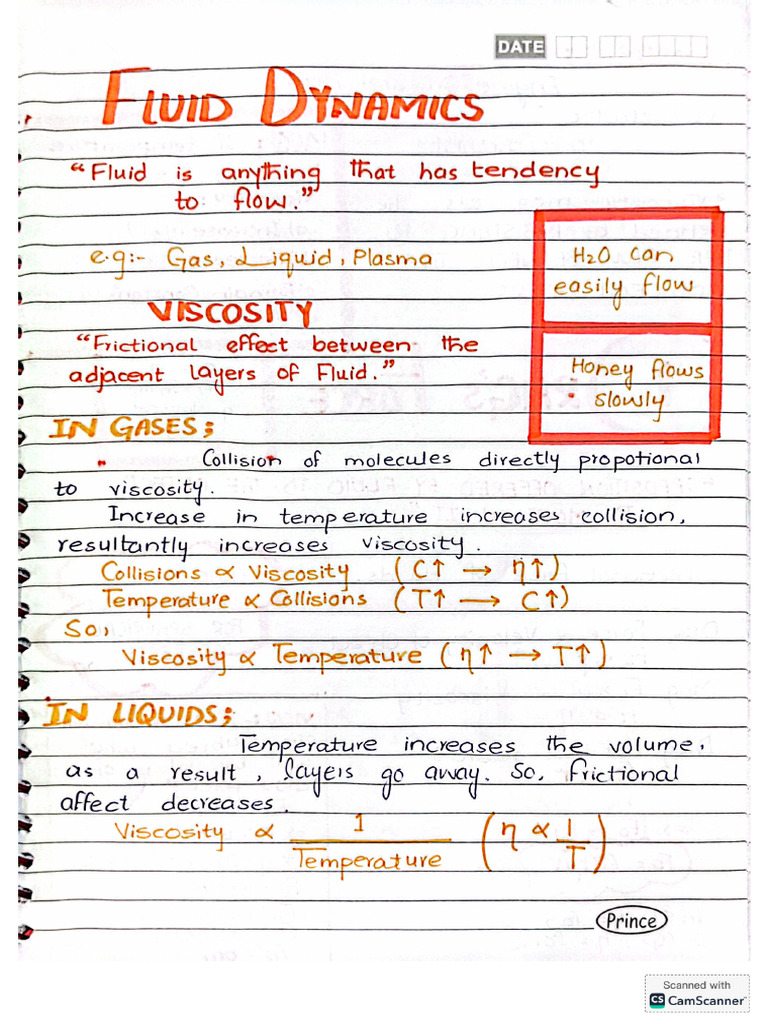 DATE
FLUID DYNAMICS
"Fluid is anything that has tendency
to flow."
e.g:- Gas, Liquid, Plasma
H₂O can
easily flow
VISCOSITY
"Frictional effect between the
adjacent layers of Fluid."
Honey flows
slowly
IN GASES;
Collision of molecules directly propotional
to viscosity.
Increase in temperature increases collision,
resultantly increases viscosity.
Collisions ∝ Viscosity (C↑ → η↑)
Temperature ∝ Collisions (T↑ → C↑)
So,
Viscosity ∝ Temperature (η↑ → T↑)
IN LIQUIDS;
Temperature increases the volume,
as a result, layers go away. So, frictional
affect decreases.
Viscosity ∝ 1/Temperature (η ∝ 1/T)
Prince
Scanned with
CS CamScanner